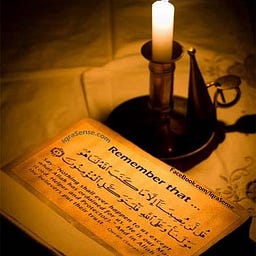 IqraSense.com
Remember that...
قُل لَّن يُصِيبَنَا إِلَّا مَا كَتَبَ اللَّهُ لَنَا هُوَ
مَوْلَانَا وَعَلَى اللَّهِ فَلْيَتَوَكَّلِ الْمُؤْمِنُونَ
Say: "Nothing shall ever happen to us except
what Allah has ordained for us. He is our
Helper and Protector)." And in Allah let the
believers put their trust.
FaceBook.com/IqraSense